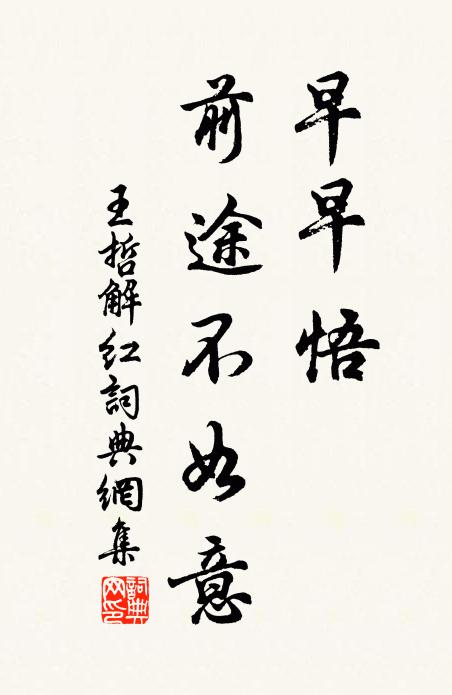 早早悟
前途不如意
王哲解红詞典網集
詞典网印